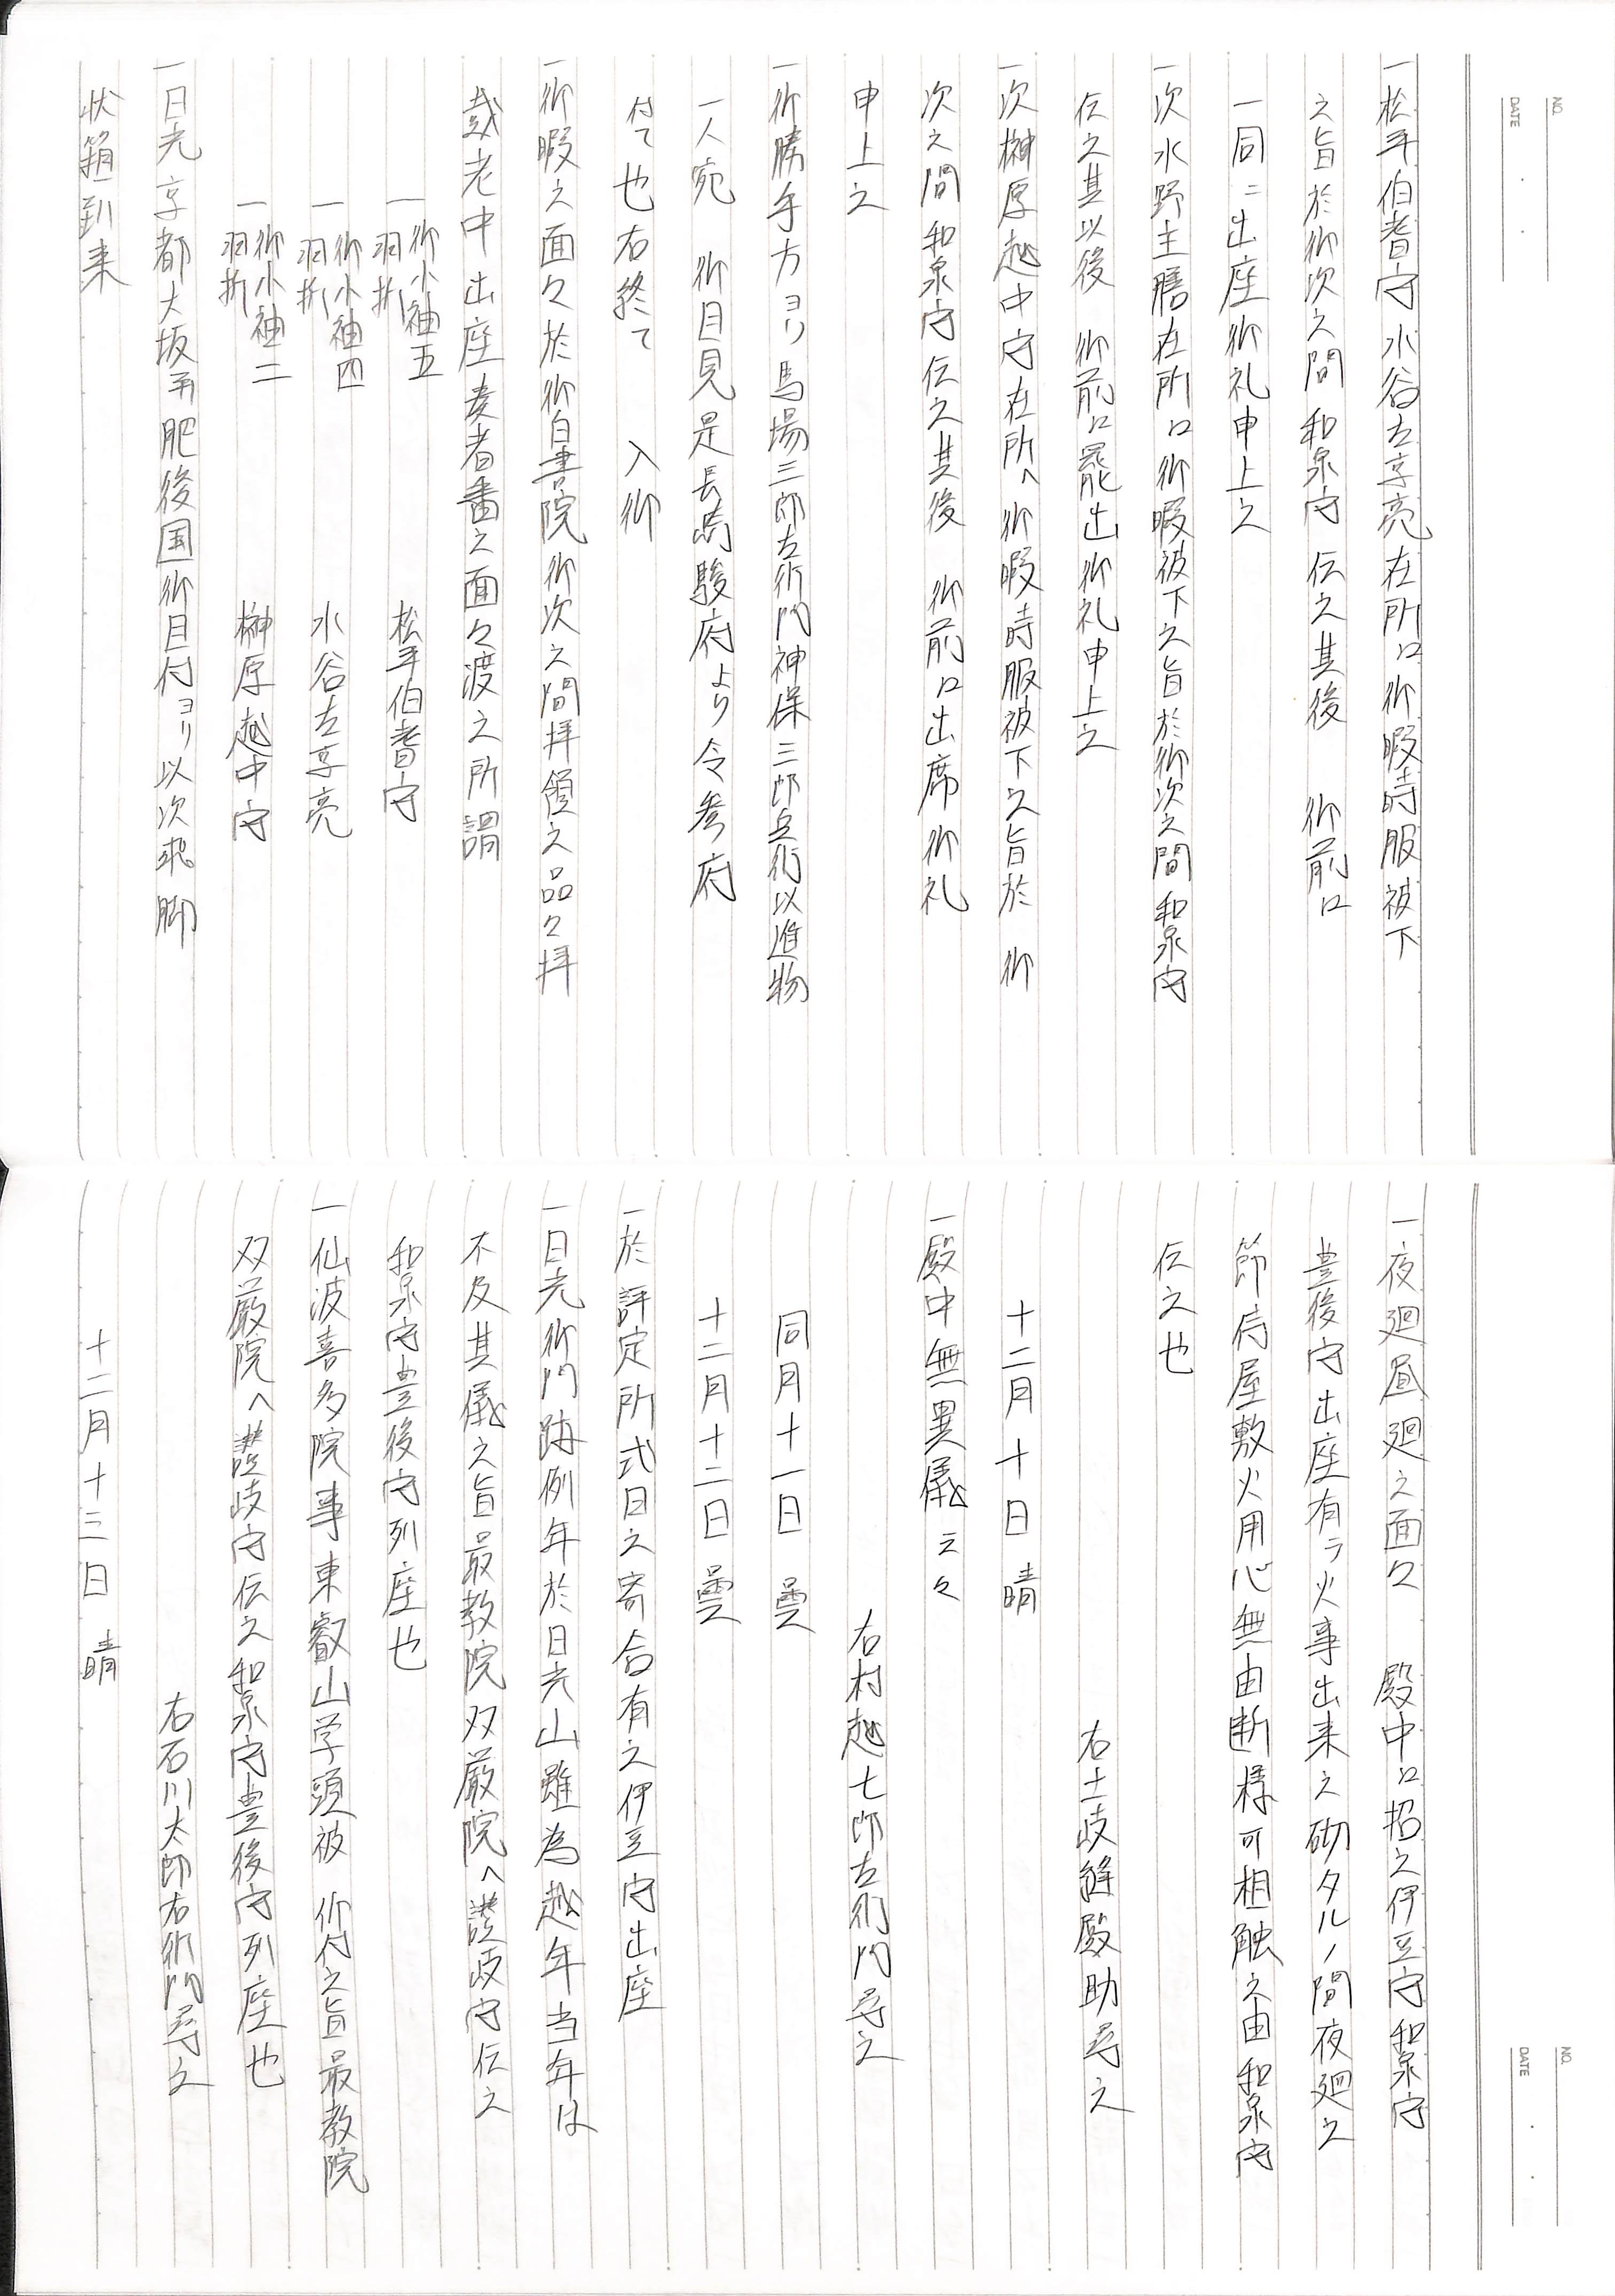 NO.
DATE
一松平伯耆守水谷左京亮在所江御暇時服被下
之旨於御次之間和泉守伝之其後 御前江
一同ニ出座御礼申上之
一次水野主膳在所江御暇被下之旨於御次之間和泉守
伝之其以後 御前江罷出御礼申上之
一次榊原越中守在所へ御暇時服被下之旨於 御
次之間和泉守伝之其後 御前江出席御礼
申上之
一御勝手方ヨリ馬場三郎左衛門神保三郎兵衛以進物
一人宛 御目見是長崎駿府より令参府
付て也右終て 入御
一御暇之面々於御白書院御次之間拝領之品々拝
戴老中出座奏者番之面々渡之所謂
一御小袖五 羽折 松平伯耆守
一御小袖四 羽折 水谷左京亮
一御小袖二 羽折 榊原越中守
一日光京都大坂并肥後国御目付ヨリ以次飛脚
状箱到来
NO.
DATE
一夜廻昼廻之面々 殿中江招之伊豆守和泉守
豊後守出座有テ火事出来之砌タルノ間夜廻之
節侍屋敷火用心無由断様可相触之由和泉守
伝之也
右土岐縫殿助尋之
十二月十日 晴
一殿中無異儀云々
右村越七郎左衛門尋之
同月十一日 曇
十二月十二日 曇
一於評定所式日之寄合有之伊豆守出座
一日光御門跡例年於日光山雖為越年当年は
不及其儀之旨最教院双厳院へ讃岐守伝之
和泉守豊後守列座也
一仙波喜多院事東叡山学頭被 仰付之旨最教院
双厳院へ讃岐守伝之和泉守豊後守列座也
右石川太郎右衛門尋之
十二月十三日 晴